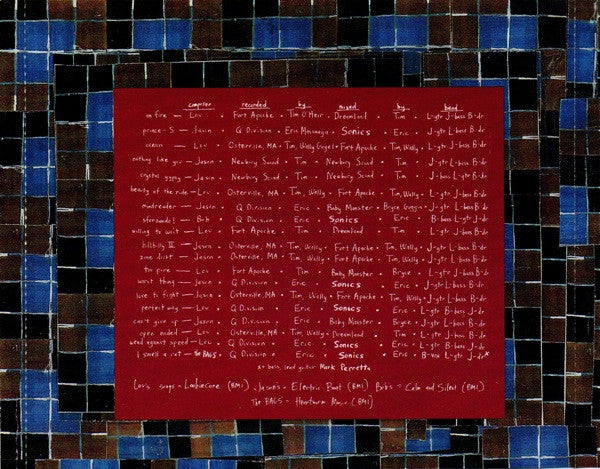 composer recorded by mixed by band
on fire — Lou • Fort Apache • Tim O'Heir • Dreamland • Tim • L-gtr J-bass B-dr
prince-S — Jason • Q Division • Eric Masunaga • Sonics • Eric • J-gtr L-bass B-dr
ocean — Lou • Osterville, MA • Tim, Wally Gagel • Fort Apache • Tim, Wally • L-gtr J-bass B-dr
nothing like you — Jason • Newbury Sound • Tim • Newbury Sound • Tim • J-gtr L-bass B-dr
crystal gypsy — Jason • Newbury Sound • Tim • Newbury Sound • Tim • J-gtr L-bass B-dr
beauty of the ride — Lou • Osterville, MA • Tim, Wally • Fort Apache • Tim, Wally • L-gtr J-bass B-dr
mindreader — Jason • Q Division • Eric • Baby Monster • Bryce Goggin • J-gtr L-bass B-dr
sforzando! — Bob • Q Division • Eric • Sonics • Eric • B-gtr L-bass J-dr
willing to wait — Lou • Fort Apache • Tim • Dreamland • Tim • L-gtr J-bass B-dr
hillbilly II — Jason • Osterville, MA • Tim, Wally • Fort Apache • Tim, Wally • J-gtr L-bass B-dr
zone doubt — Jason • Osterville, MA • Tim, Wally • Fort Apache • Tim, Wally • J-gtr L-bass B-dr
too pure — Lou • Fort Apache • Tim • Baby Monster • Bryce • L-gtr J-bass B-dr
worst thing — Jason • Q Division • Eric • Sonics • Eric • J-gtr L-bass B-dr
love to fight — Jason • Osterville, MA • Tim, Wally • Fort Apache • Tim, Wally • J-gtr L-bass B-dr
perfect way — Lou • Q Division • Eric • Sonics • Eric • L-gtr J-bass B-dr
can't give up — Jason • Q Division • Eric • Baby Monster • Bryce • J-gtr L-bass B-dr
open ended — Lou • Osterville, MA • Tim, Wally • Dreamland • Tim • L-gtr J-bass B-dr
weed against speed — Lou • Q Division • Eric • Sonics • Eric • L-gtr B-bass J-dr
I smell a rat — The BAGS • Q Division • Eric • Sonics • Eric • B-vox L-gtr J-dr*
* bass, lead guitar Mark Perretta
Lou's songs - Loobiecore (BMI) • Jason's - Electric Boat (BMI) Bob's - Calm and Silent (BMI)
The BAGS - Hearfarm Music (BMI)